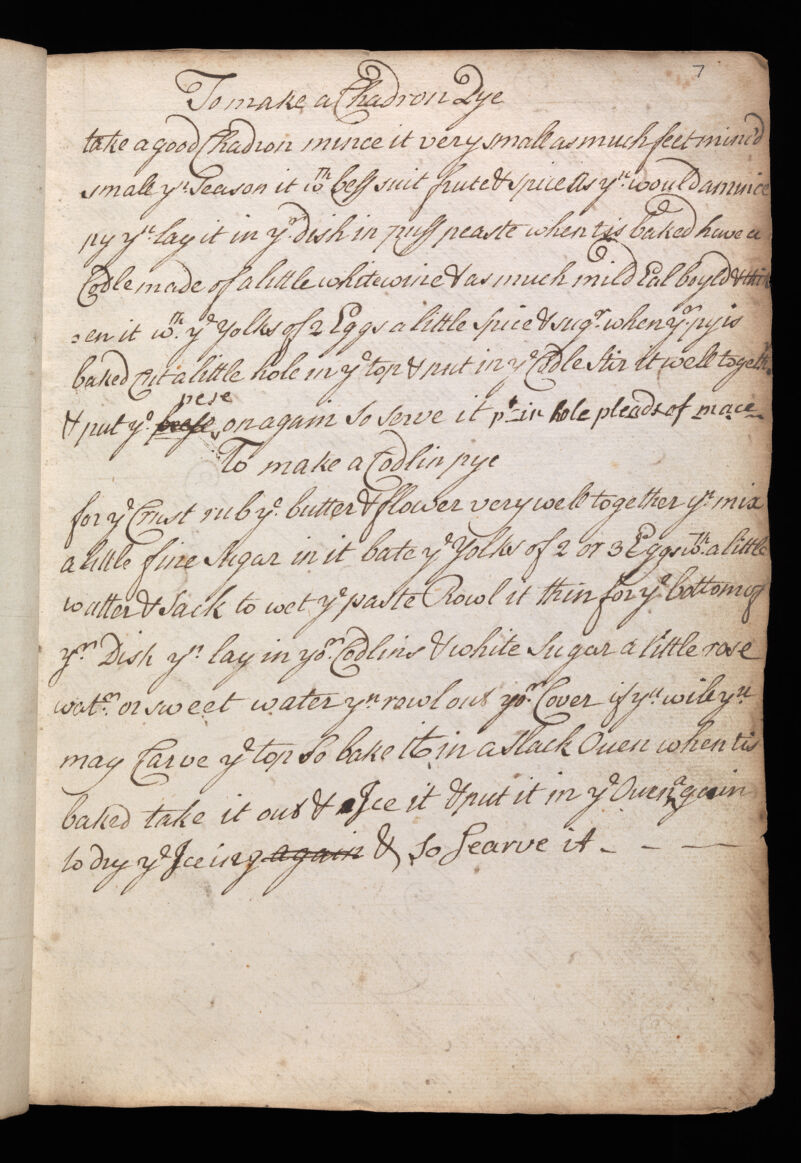 7
To make a Chadron Pye
take a good Chadron mince it very small as much feet minc'd
small yn Season it wth beff suit frute & spice as yu would a mince
py yn lay it in yr dish in puff peaste when tis baked have a
Codle made of a little whitewine & as much mild Eal boyld & thik
=en it wth ye Yolks of 2 Eggs a little spice & sugr when yr py is
baked Cut a little hole in ye top & put in ye Codle stir it well togethr
pese
& put ye on again so serve it pt in hole pleads of mace
To make a Codlin pye
for ye Crust rub ye butter & flower very well together yn mix
a little fine Sugar in it bate ye Yolks of 2 or 3 Eggs wth a little
watter & Sack to wet ye paste Rowl it thin for ye bottom of
yr Dish yn lay in yor Codlins & white Sugar a little rose
watr or sweet water yn rowl out yor Cover if yu will yu
may Carve ye top so bake it in a slack Oven when tis
baked take it out & Ice it & put it in ye Oven again
to dry ye Iceing again & so Searve it - - - -